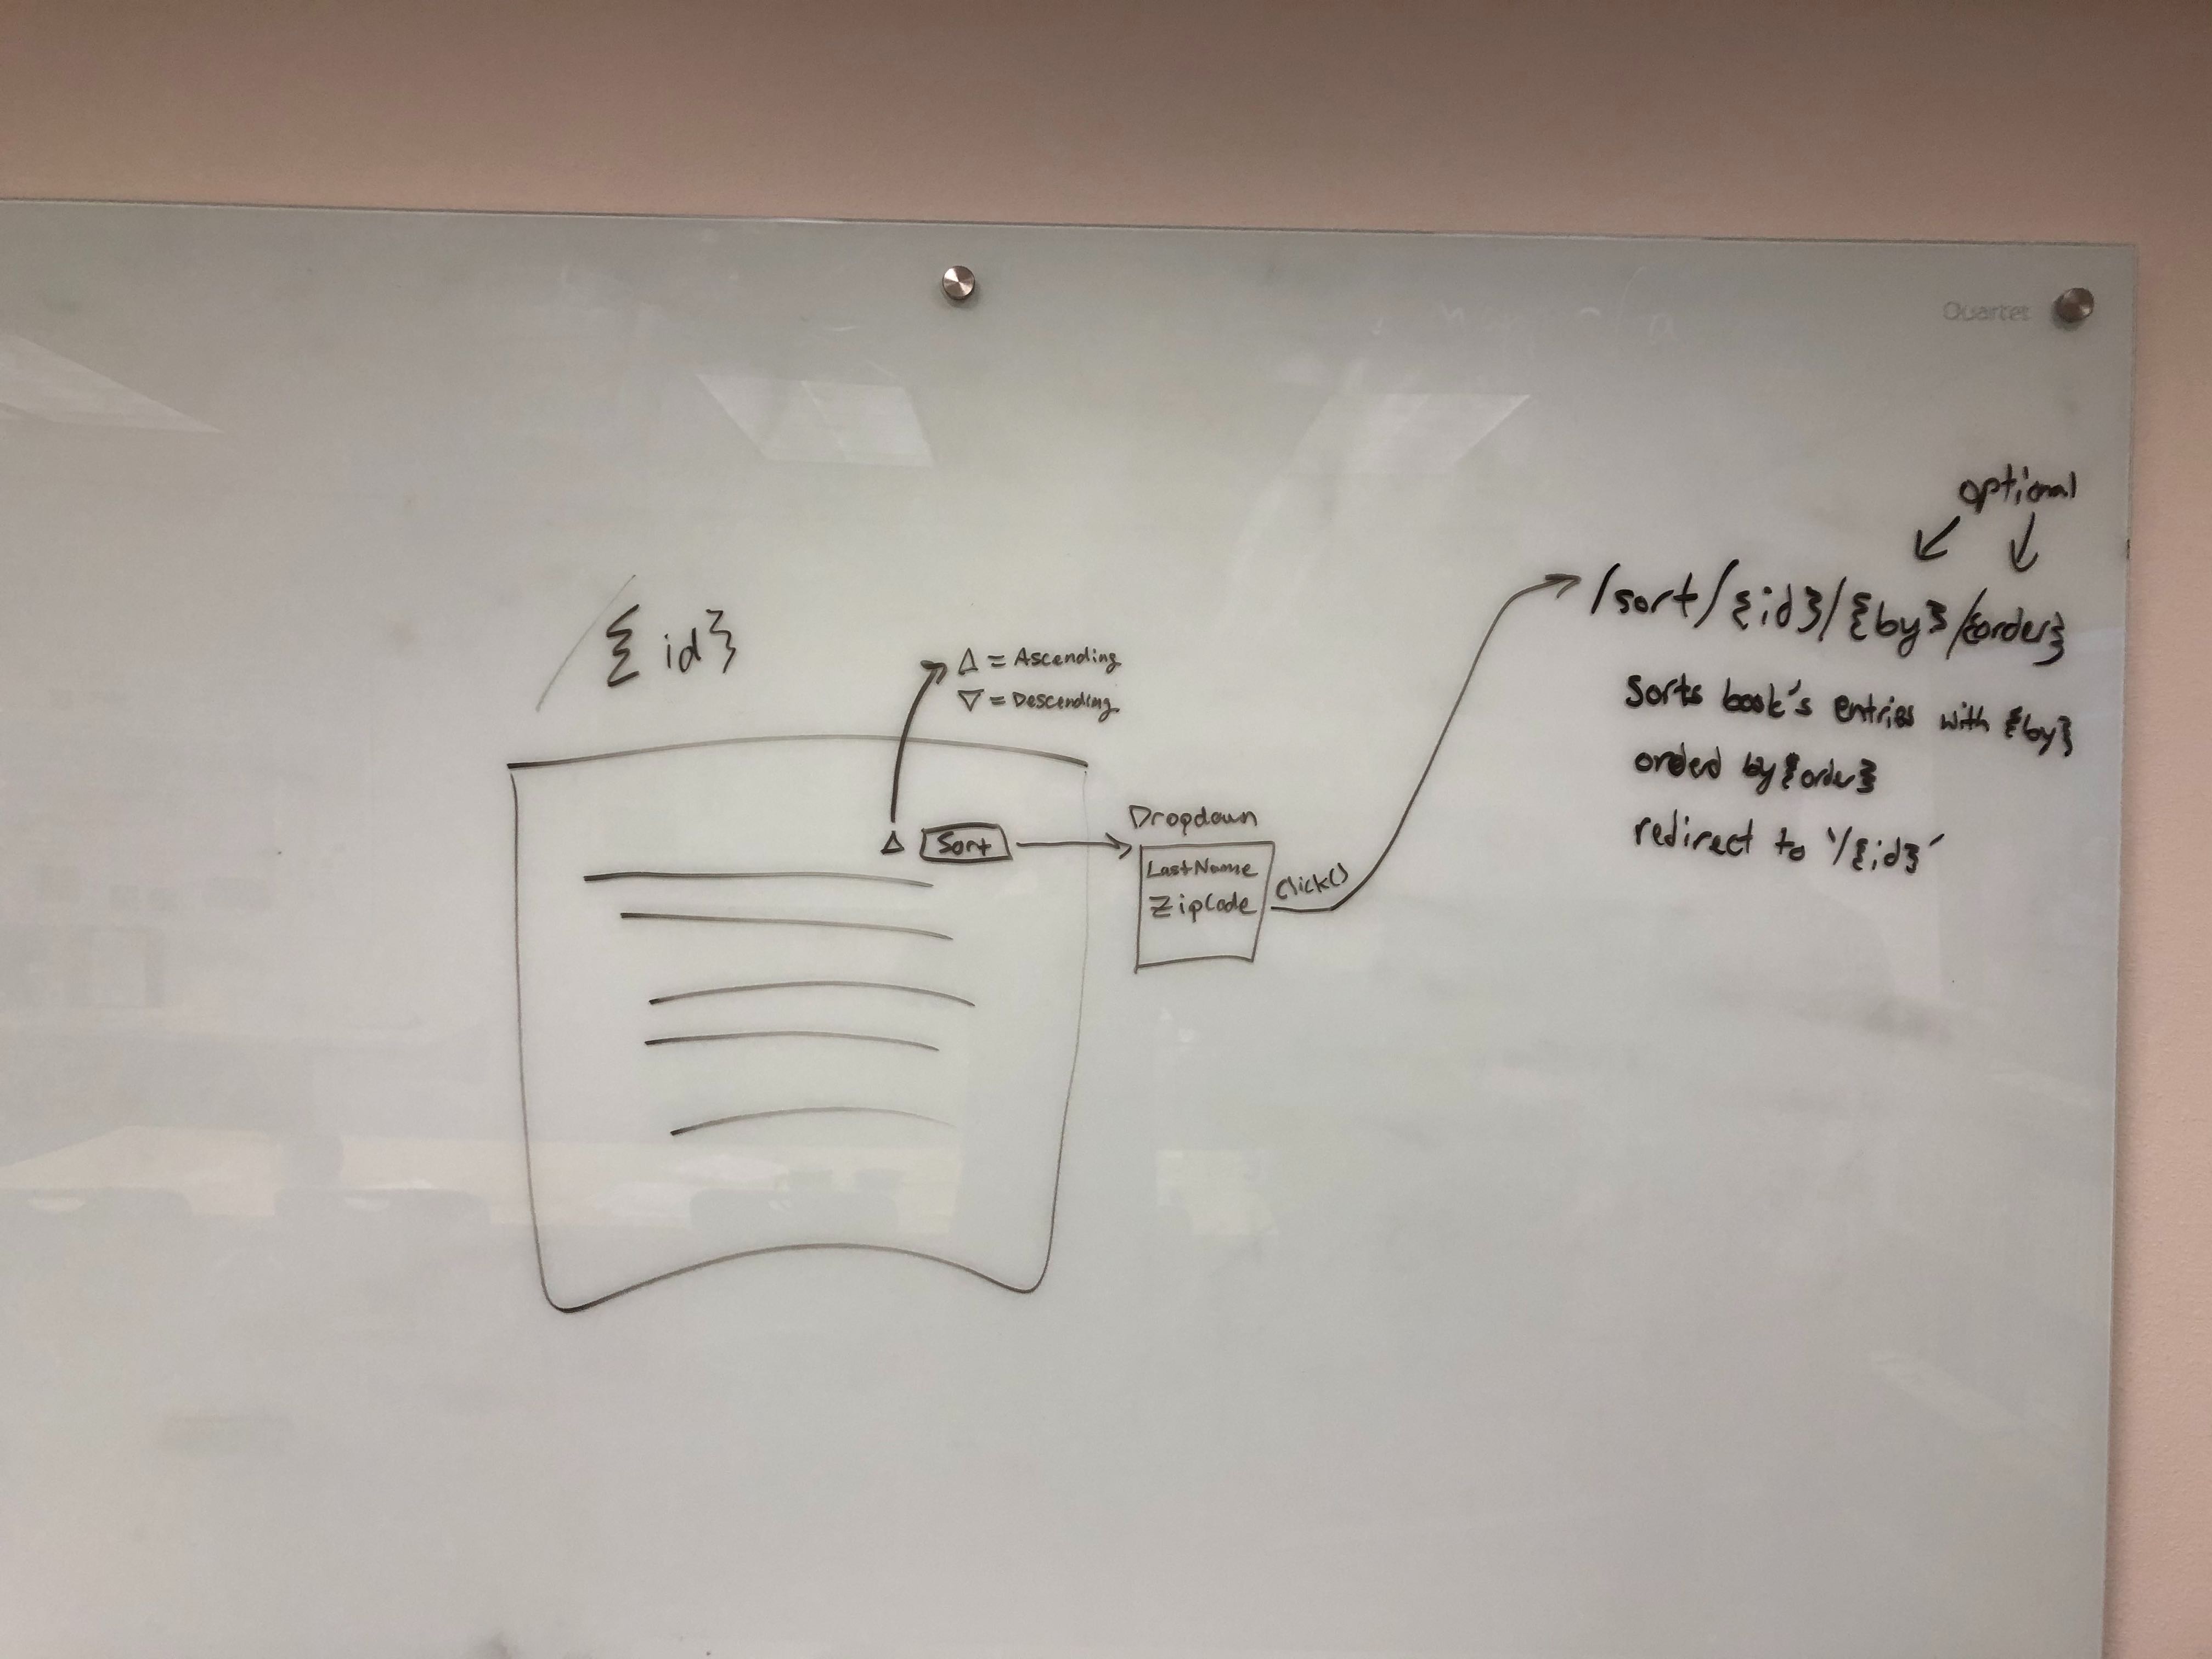 Quartet
optional
/{id}
△ = Ascending
▽ = Descending
△ Sort
Dropdown
LastName
ZipCode
Click()
/sort/{id}/{by}/{order}
Sorts book's entries with {by}
orded by {order}
redirect to '/{id}'